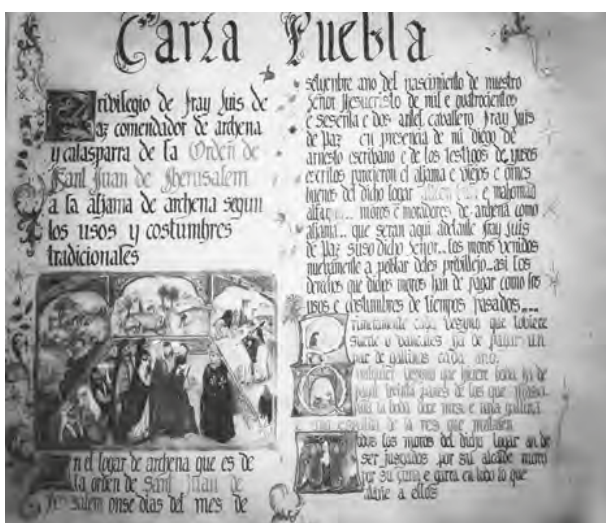 Carta Puebla
Privilegio de fray luis de
paz comendador de archena
y calasparra de la Orden de
Sant Juan de Jherusalem
a la aljama de archena segun
los usos y costumbres
tradicionales
En el logar de archena que es de
la orden de Sant Juan de
Jherusalem onse dias del mes de
setyenbre ano del nascimiento de nuestro
Señor Jesucristo de mil e quatrocientos
e sesenta e dos antel caballero fray luis
de Paz en presencia de mi diego de
arnesto escribano e de los testigos de yusos
escritos parecieron el aljama e viejos e omes
buenos del dicho logar e mahomad
alfaqui... moros e moradores de archena como
aljama... que seran aqui adelante fray luis
de Paz suso dicho señor... los moros venidos
nuevamente a poblar deles privillejo... asi los
derechos que dichos moros han de pagar como los
usos e costumbres de tiempos pasados...
Primeramente cada vesyno que tobiere
suerte o bancales ha de pagar un
par de gallinas cada ano.
Qualquier vesyno que ficiere boda ha de
pagar treinta panes de los que
la boda doce mrs. e una gallina
una espalda de la res que mataren
Todos los moros del dicho logar an de
ser jusgados por su alcalde moro
por su çuna e xarra en todo lo que
a ellos